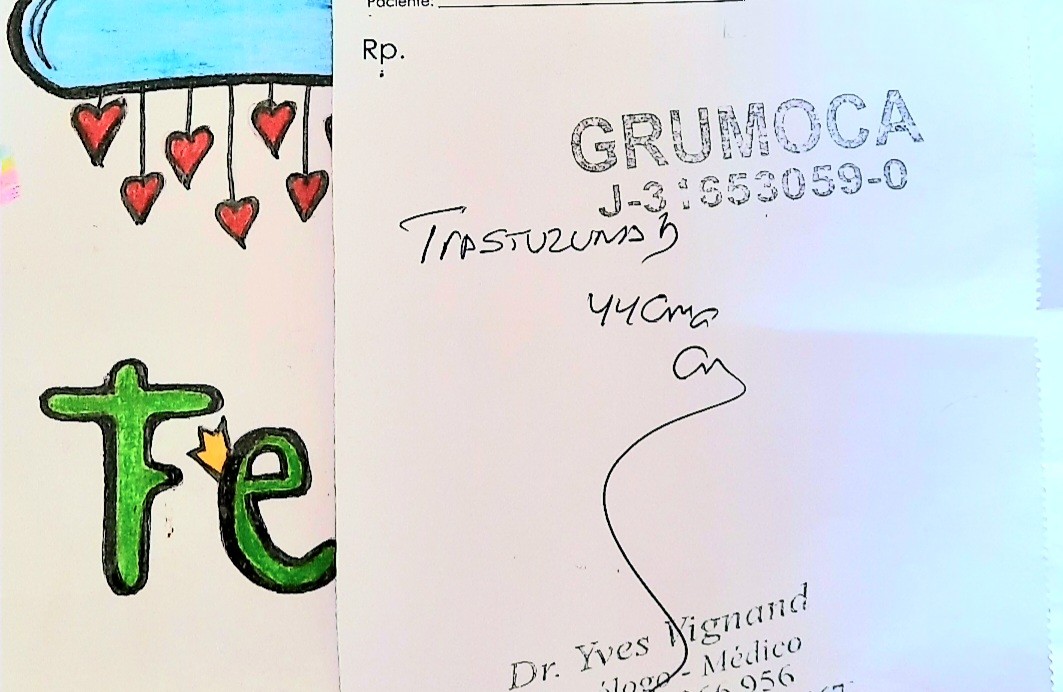 Paciente:
Rp.
GRUMOCA
J-31653059-0
TRASTUZUMAB
440mg
Dr. Yves Vignand
ólogo - Médico
956
Fe